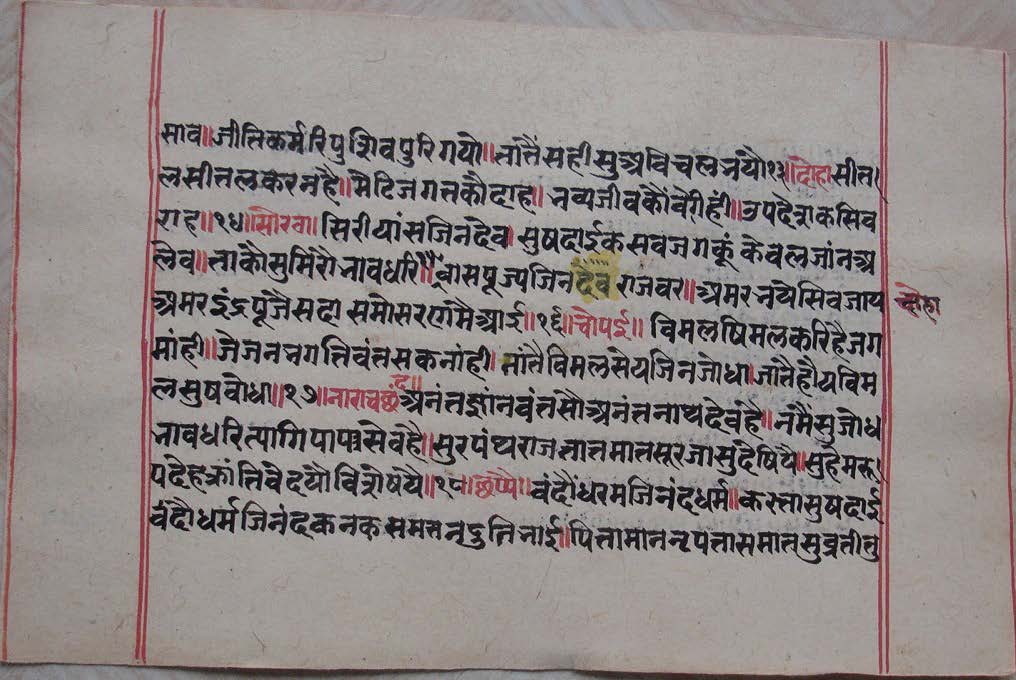 साव॥जीतिकर्मरिपुशिवपुरिगयो॥तातैसहीसुअविचलभयौ१३॥दोहा॥सीत
लसीतलकरनहै॥मेटिजगतकौदाह॥भव्यजीवकौंवेगेही॥उपदेशकसिव
राह॥१४॥सौरठा॥सिरीयांसजिनदेव॥सुषदाईकसवजगकूं केवलजांनअ
लेव॥ताकौसुमिरोभावधरि॥ वासपूज्यजिनदेव राजवर॥अमरभयेसिवजाय
दोहा
अमरइंद्रपूजैसदा समोसरणमैआई॥१६॥चौपई॥ विमलविमलकरिहैजग
मांही॥जेजनभगतिवंतसकनांही॥तांतैविमलसेयजिनजोधा॥जातैहौयविम
लसुषवोधा॥१७॥नाराचछंद॥अनंतज्ञानवंतसौअनंतनाथदेवहै॥नमैसुजोध
भावधरित्यागिपापसेवहै॥सुरपंथराजतातमातसूरजासुदेषियै॥सुहेमरू
पदेहक्रांतिवेदयौविशेषयै॥१८॥छप्पै॥वंदौंधरमजिनंदधर्म॥करतासुषदाई
वंदौधर्मजिनंदकनकसमतनदुतिभाई॥पिताभाननृपतासमातसुव्रतीतु